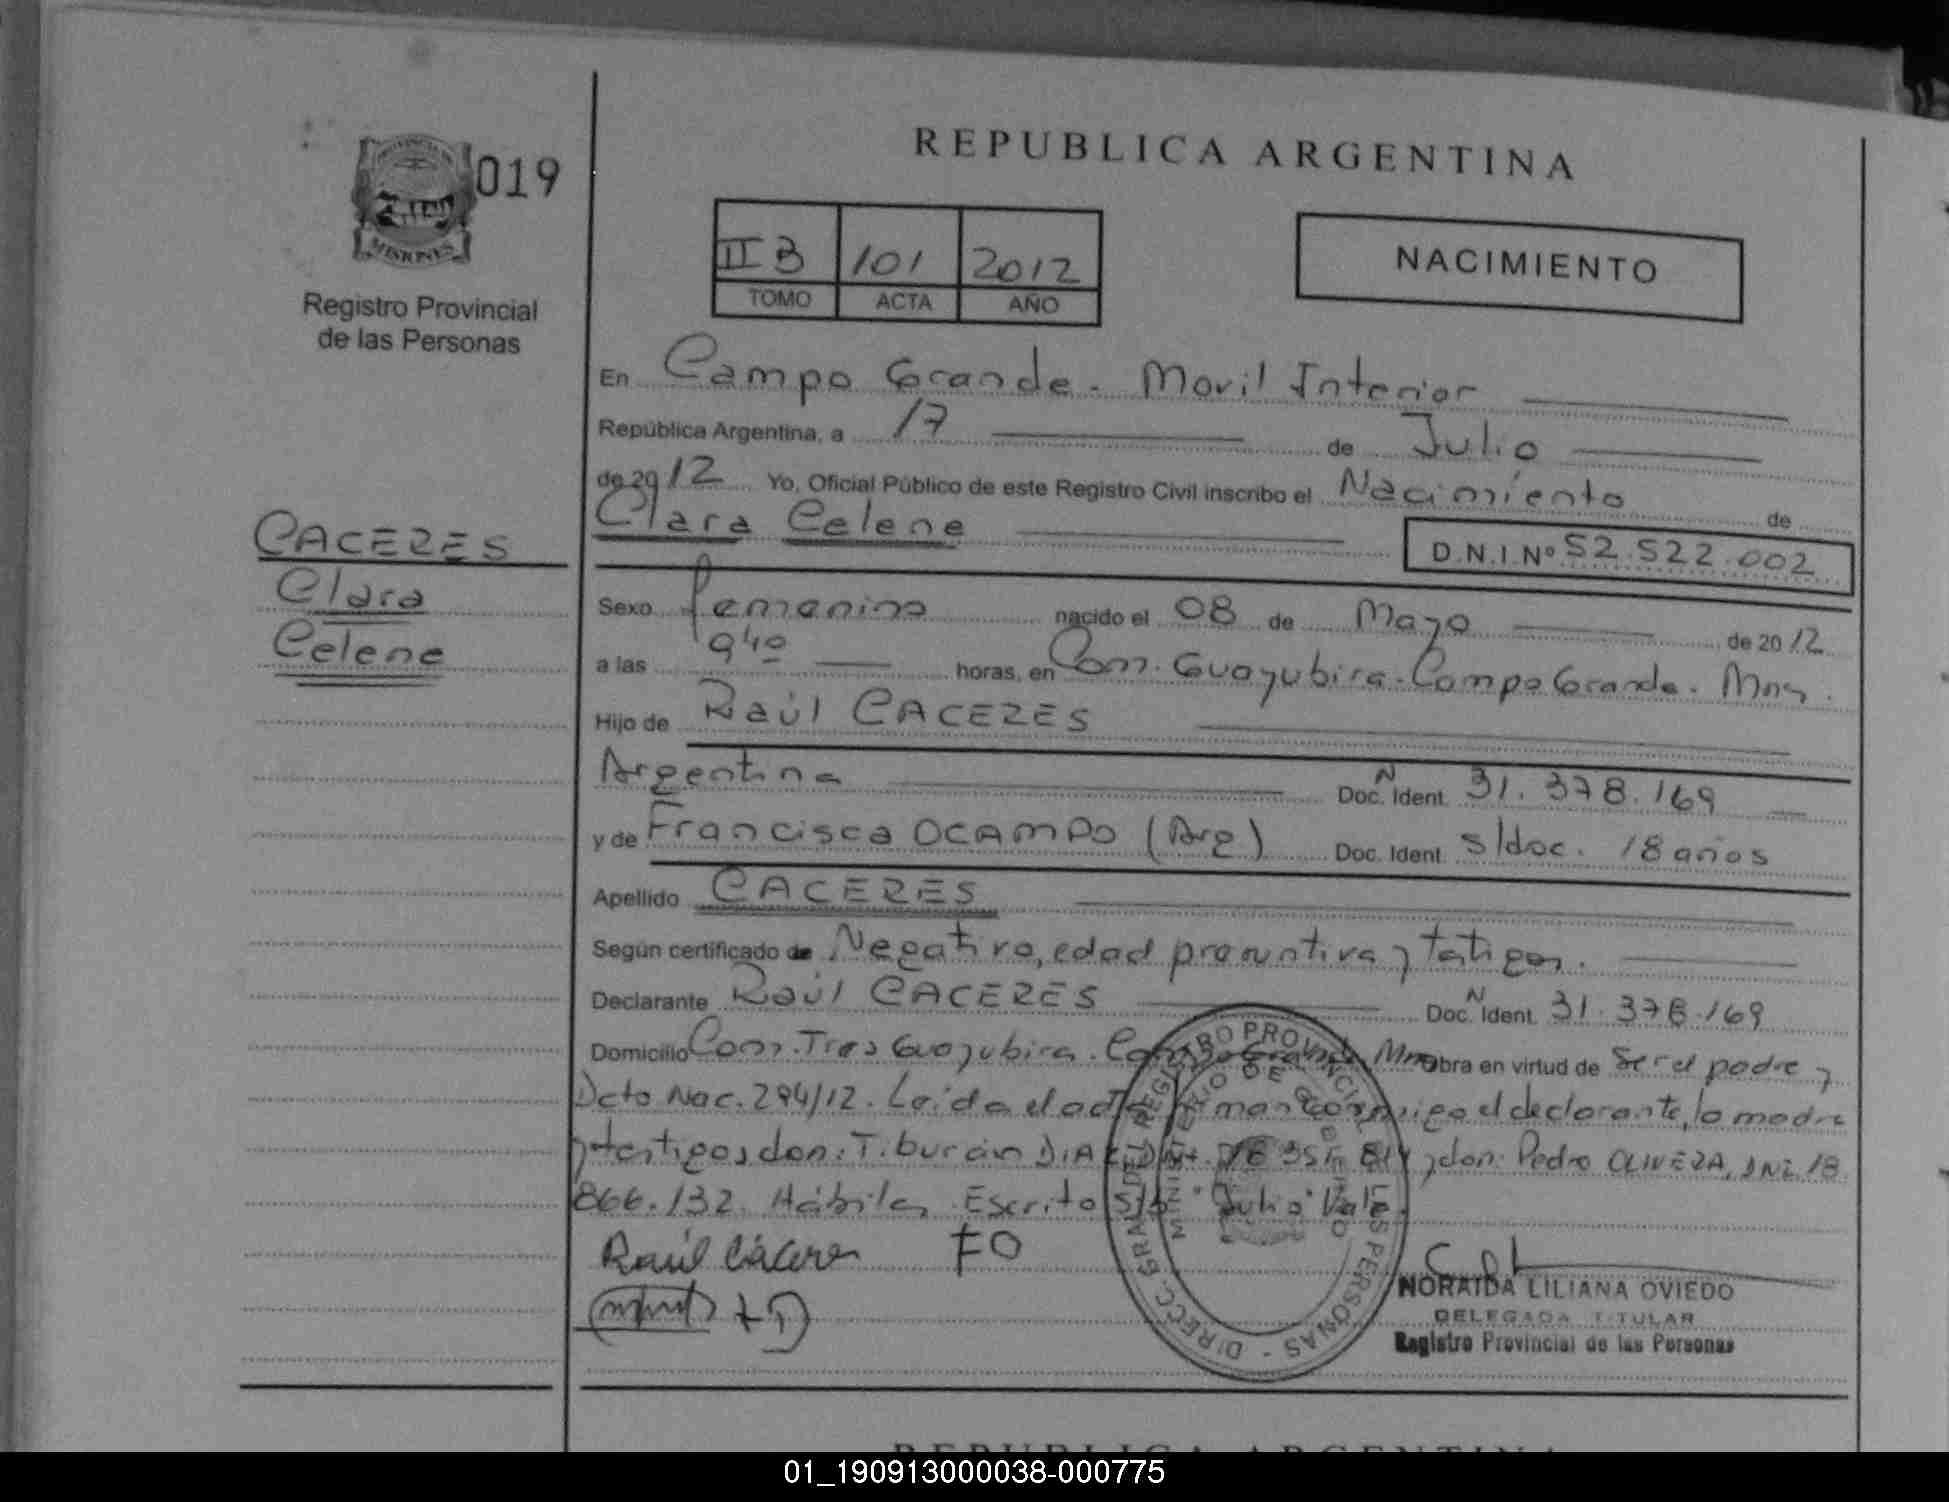 REPUBLICA ARGENTINA
PROVINCIA DE
MISIONES
019
Registro Provincial
de las Personas
II B 101 2012
TOMO ACTA AÑO
NACIMIENTO
En Campo Grande - Movil Interior
República Argentina, a 17 de Julio
de 2012 Yo, Oficial Público de este Registro Civil inscribo el Nacimiento de
Clara Celene
D.N.I. Nº 52.522.002
CACERES
Clara
Celene
Sexo femenino nacido el 08 de Mayo de 2012
a las 9 40 horas, en Com. Guayubira - Campo Grande. Mnes.
Hijo de Raúl CACERES
Argentina Doc. Ident. N 31.378.169
y de Francisca OCAMPO (Arg) Doc. Ident. s/doc. 18 años
Apellido CACERES
Según certificado de Negativo, edad presuntiva y testigos.
Declarante Raúl CACERES Doc. Ident. N 31.378.169
Domicilio Com. Tres Guayubira. Campo Grande Mnes Obra en virtud de Ser el padre y
Dcto Nac. 294/12. Leída el acta firman conmigo el declarante, la madre
y testigos don: Tiburcio DIAZ y don: Pedro OLIVERA, DNI. 18.
866.132. Hábiles Escrito S/b "Julio" Vale.
Raúl Cáceres FO
DIRECC. GRAL. DEL REGISTRO PROVINCIAL DE LAS PERSONAS
MINISTERIO DE GOBIERNO
NORAIDA LILIANA OVIEDO
DELEGADA TITULAR
Registro Provincial de las Personas
REPUBLICA ARGENTINA
01_190913000038-000775